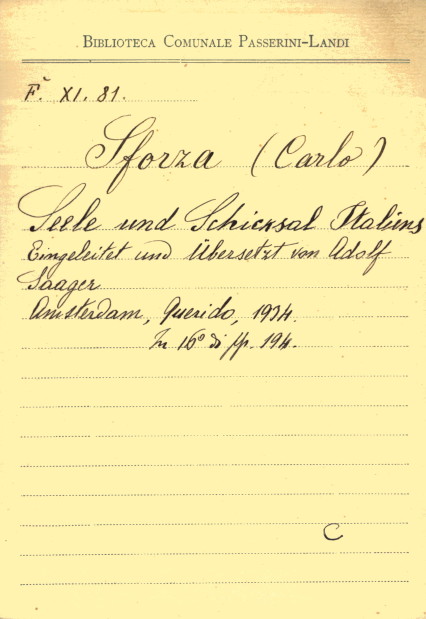 BIBLIOTECA COMUNALE PASSERINI-LANDI
F. XI. 81.
Sforza (Carlo)
Seele und Schicksal Italiens
Eingeleitet und Übersetzt von Adolf
Saager
Amsterdam, Querido, 1934.
In 16° di pp. 194.
C